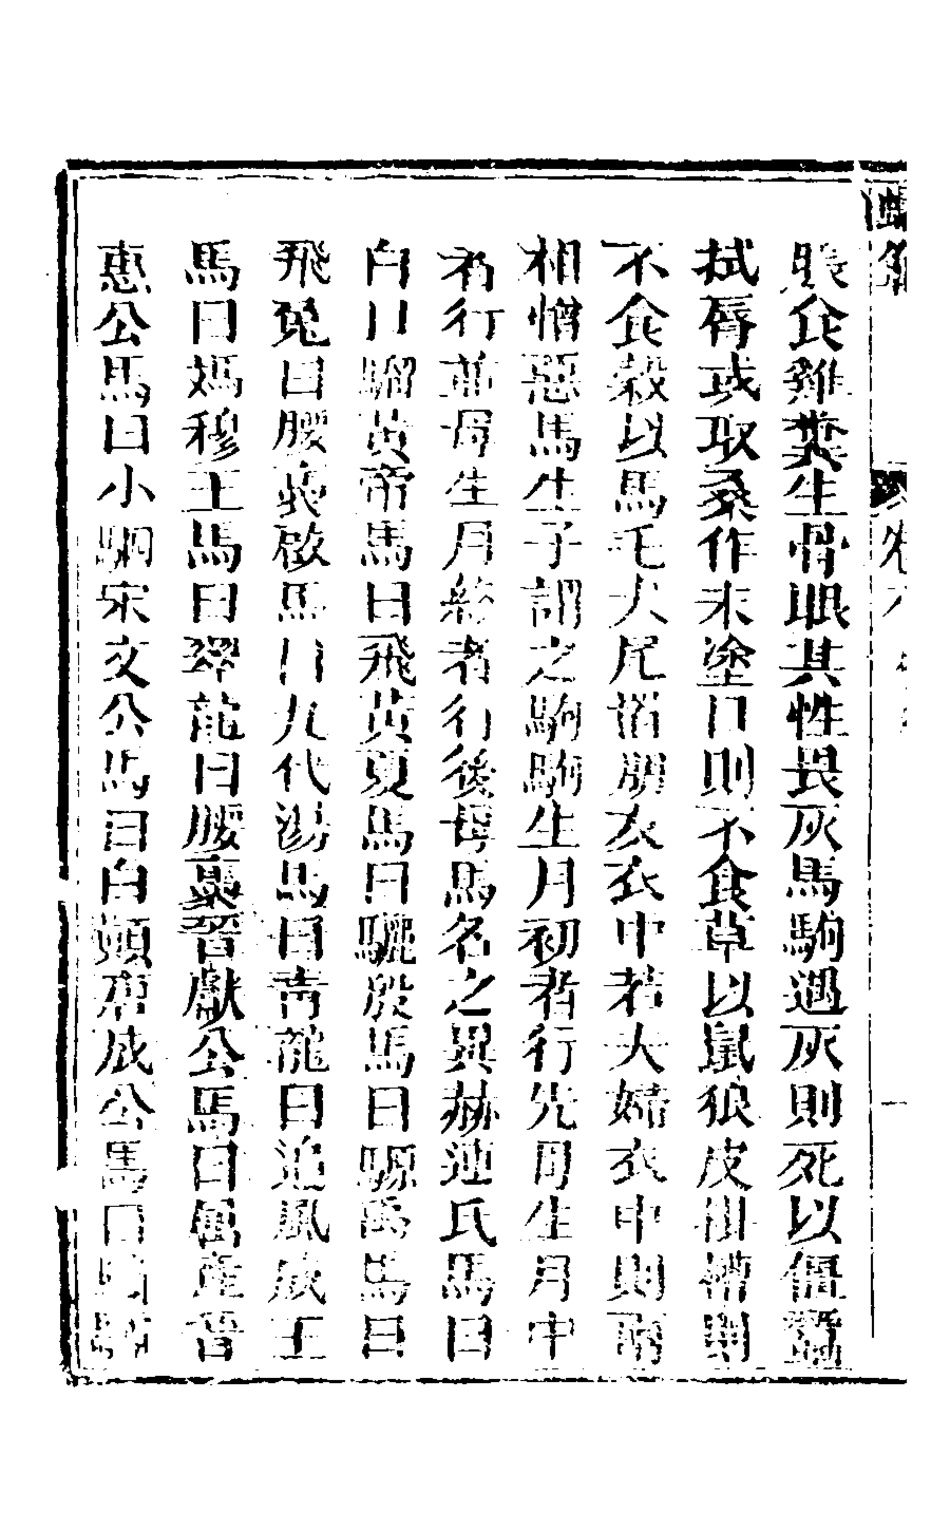 脹食雞糞生骨眼其性畏灰馬駒遇灰則死以僵蠶
拭脣或取桑作末塗口則不食草以鼠狼皮掛槽則
不食穀以馬毛犬尾朋友衣中若夫婦衣中則
相憎惡馬生子謂之駒駒生月初者行先母生月中
者行並母生月終者行後母馬名之異赫連氏馬曰
白口騮黃帝馬曰飛黃夏馬曰驪殷馬曰騵馬曰
飛兔曰騕褭啟馬曰九代湯馬曰青龍曰追風成王
馬曰媽穆王馬曰翠龍曰騕褭晉獻公馬曰屈產晉
惠公馬曰小駟宋文公馬曰白頔唐成公馬曰驌
卷六